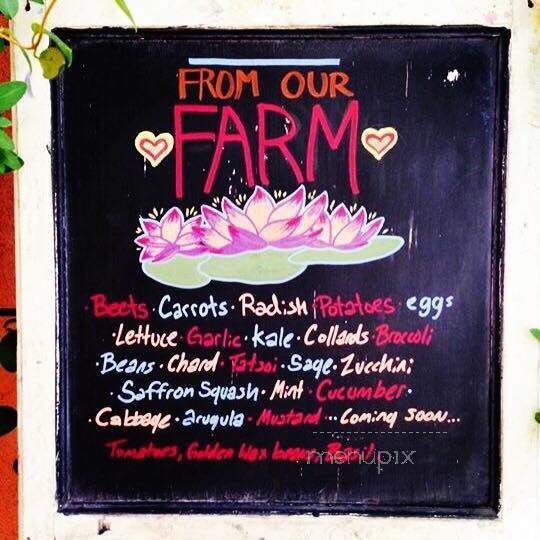 FROM OUR
FARM
Beets · Carrots · Radish · Potatoes · eggs
· Lettuce · Garlic · Kale · Collards · Broccoli
· Beans · Chard · Tatsoi · Sage · Zucchini
· Saffron Squash · Mint · Cucumber ·
· Cabbage · arugula · Mustard ... Coming soon...
Tomatoes, Golden Wax beans, Basil
menupix